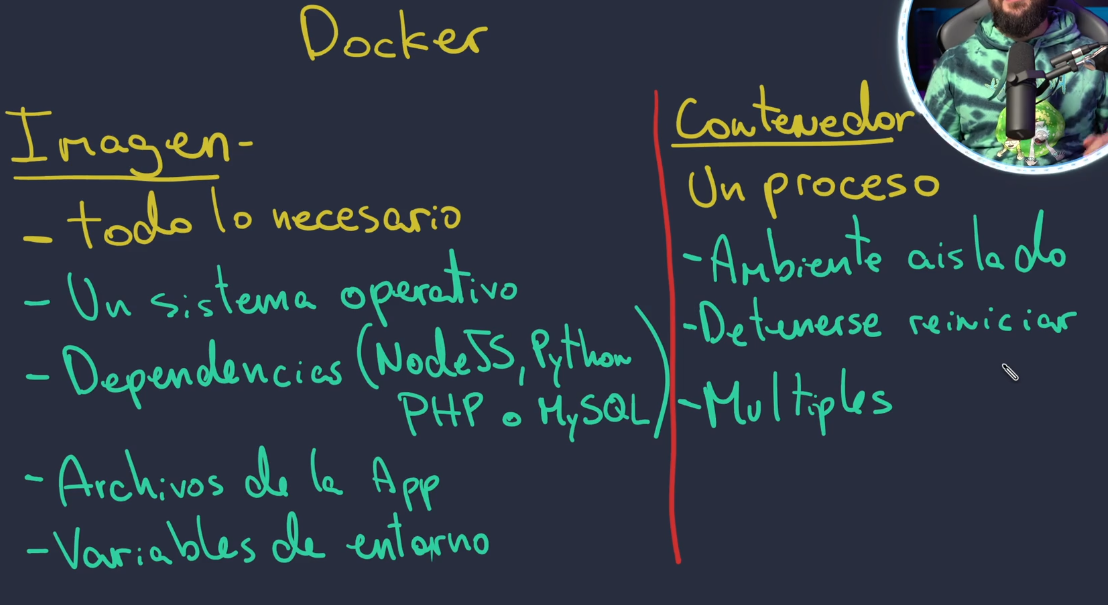 Docker
Imagen-
- todo lo necesario
- Un sistema operativo
- Dependencias (NodeJS, Python
PHP o MySQL)
- Archivos de la App
- Variables de entorno
Contenedor
Un proceso
- Ambiente aislado
- Detenerse reiniciar
- Multiples